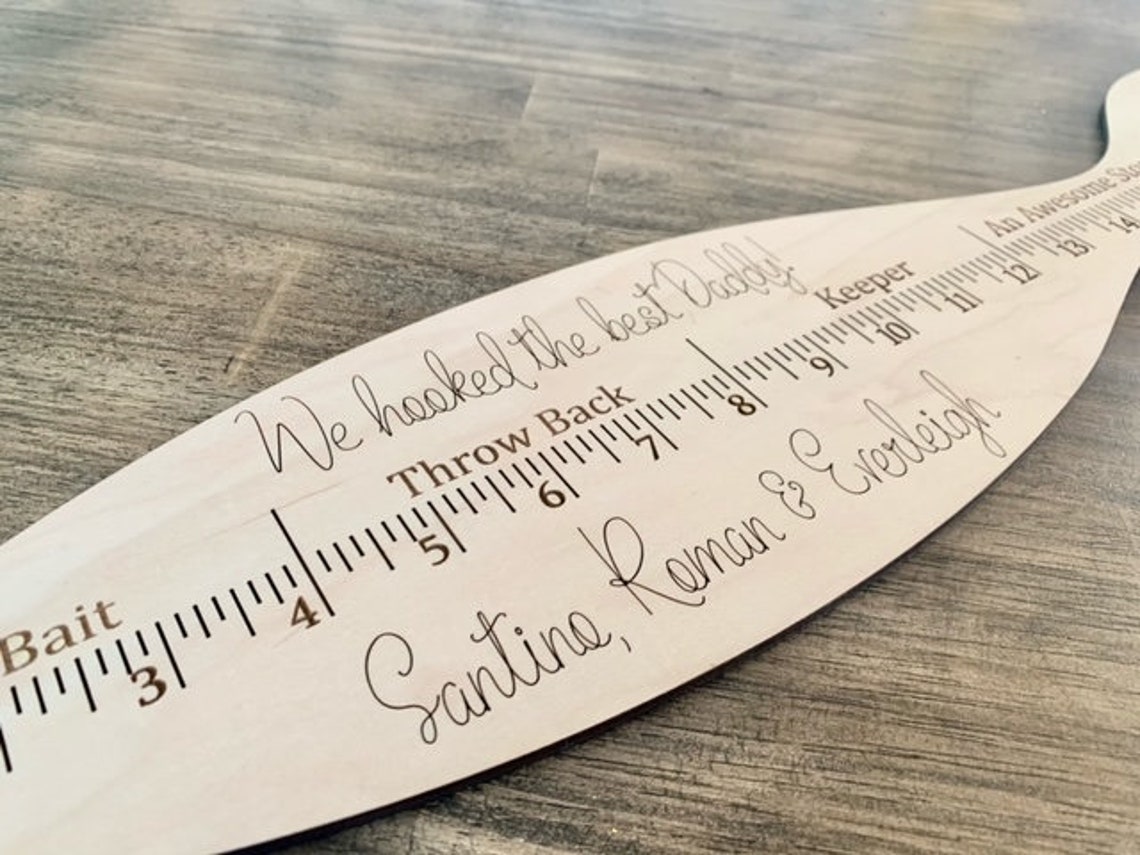 We hooked the best Daddy!
Bait
Throw Back
Keeper
An Awesome
3 4 5 6 7 8 9 10 11 12 13 14
Santino, Roman & Everleigh